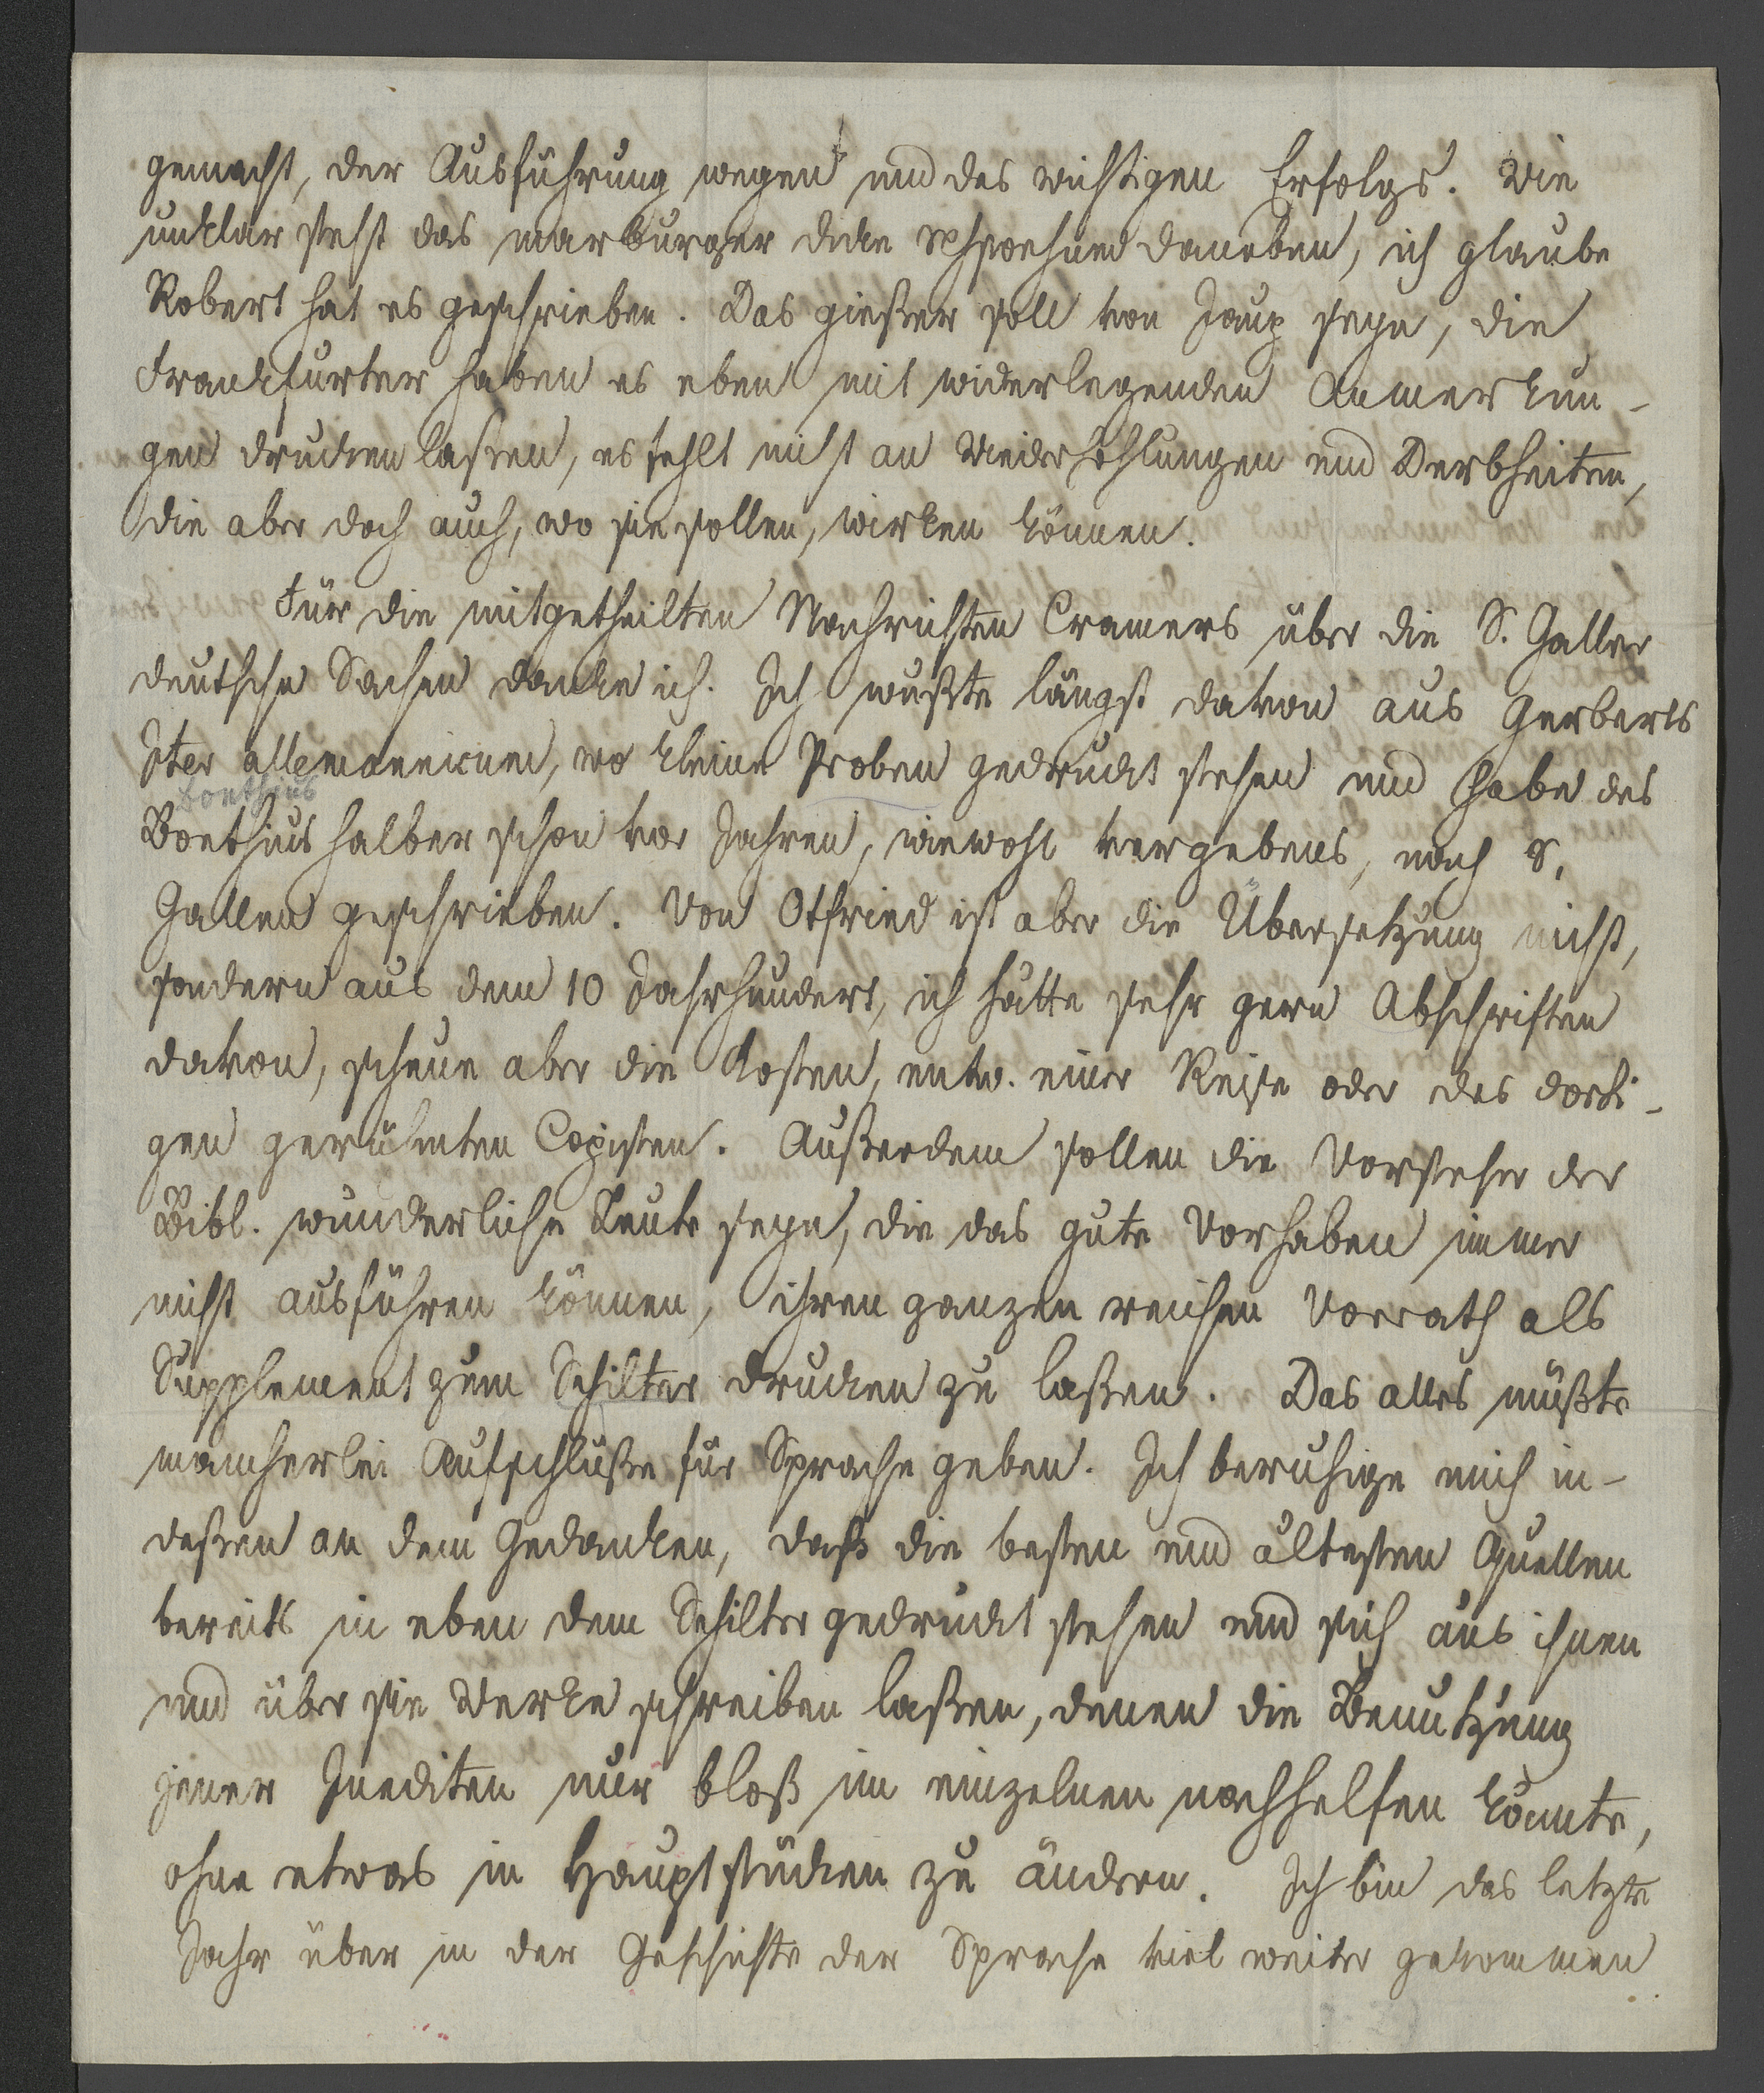 gemacht, der Ausführung wegen und des wichtigen Erfolgs. Wie
unklar steht das marburger dicke daneben, ich glaube
Robert hat es geschrieben. Das gießer soll von Jaup seyn, die
Frankfurter haben es eben mit widerlegenden Anmerkun-
gen drucken laßen, es fehlt nicht an Wiederhohlungen und Derbheiten,
die aber doch auch, wo sie sollen, wirken können.
Für die mitgetheilten Nachrichten Cramers über die S. Galler
deutsche Sachen danke ich. Ich wußte längst davon aus Gerberts
Iter allemannicum, wo kleine Proben gedruckt stehen und habe des
boethius
Boethius halber schon vor Jahren, wiewohl vergebens, nach S.
Gallen geschrieben. Von Otfried ist aber die Übersetzung nicht,
sondern aus dem 10 Jahrhundert, ich hätte sehr gern Abschriften
davon, scheue aber die Kosten, entw. einer Reise oder des dorti-
gen gerühmten Copisten. Außerdem sollen die Vorsteher der
Bibl. wunderliche Leute seyn, die das gute Vorhaben immer
nicht ausführen können, ihren ganzen reichen Vorrath als
Supplement zum Schilter drucken zu laßen. Das alles müßte
mancherlei Aufschlüße für Sprache geben. Ich beruhige mich in-
deßen an dem Gedanken, daß die besten und ältesten Quellen
bereits in eben dem Schilter gedruckt stehen und sich aus ihnen
und über sie Werke schreiben laßen, denen die Benutzung
jener Inediten nur bloß im einzelnen nachhelfen könnte,
ohne etwas in Hauptstücken zu ändern. Ich bin das letzte
Jahr über in der Geschichte der Sprache viel weiter gekommen